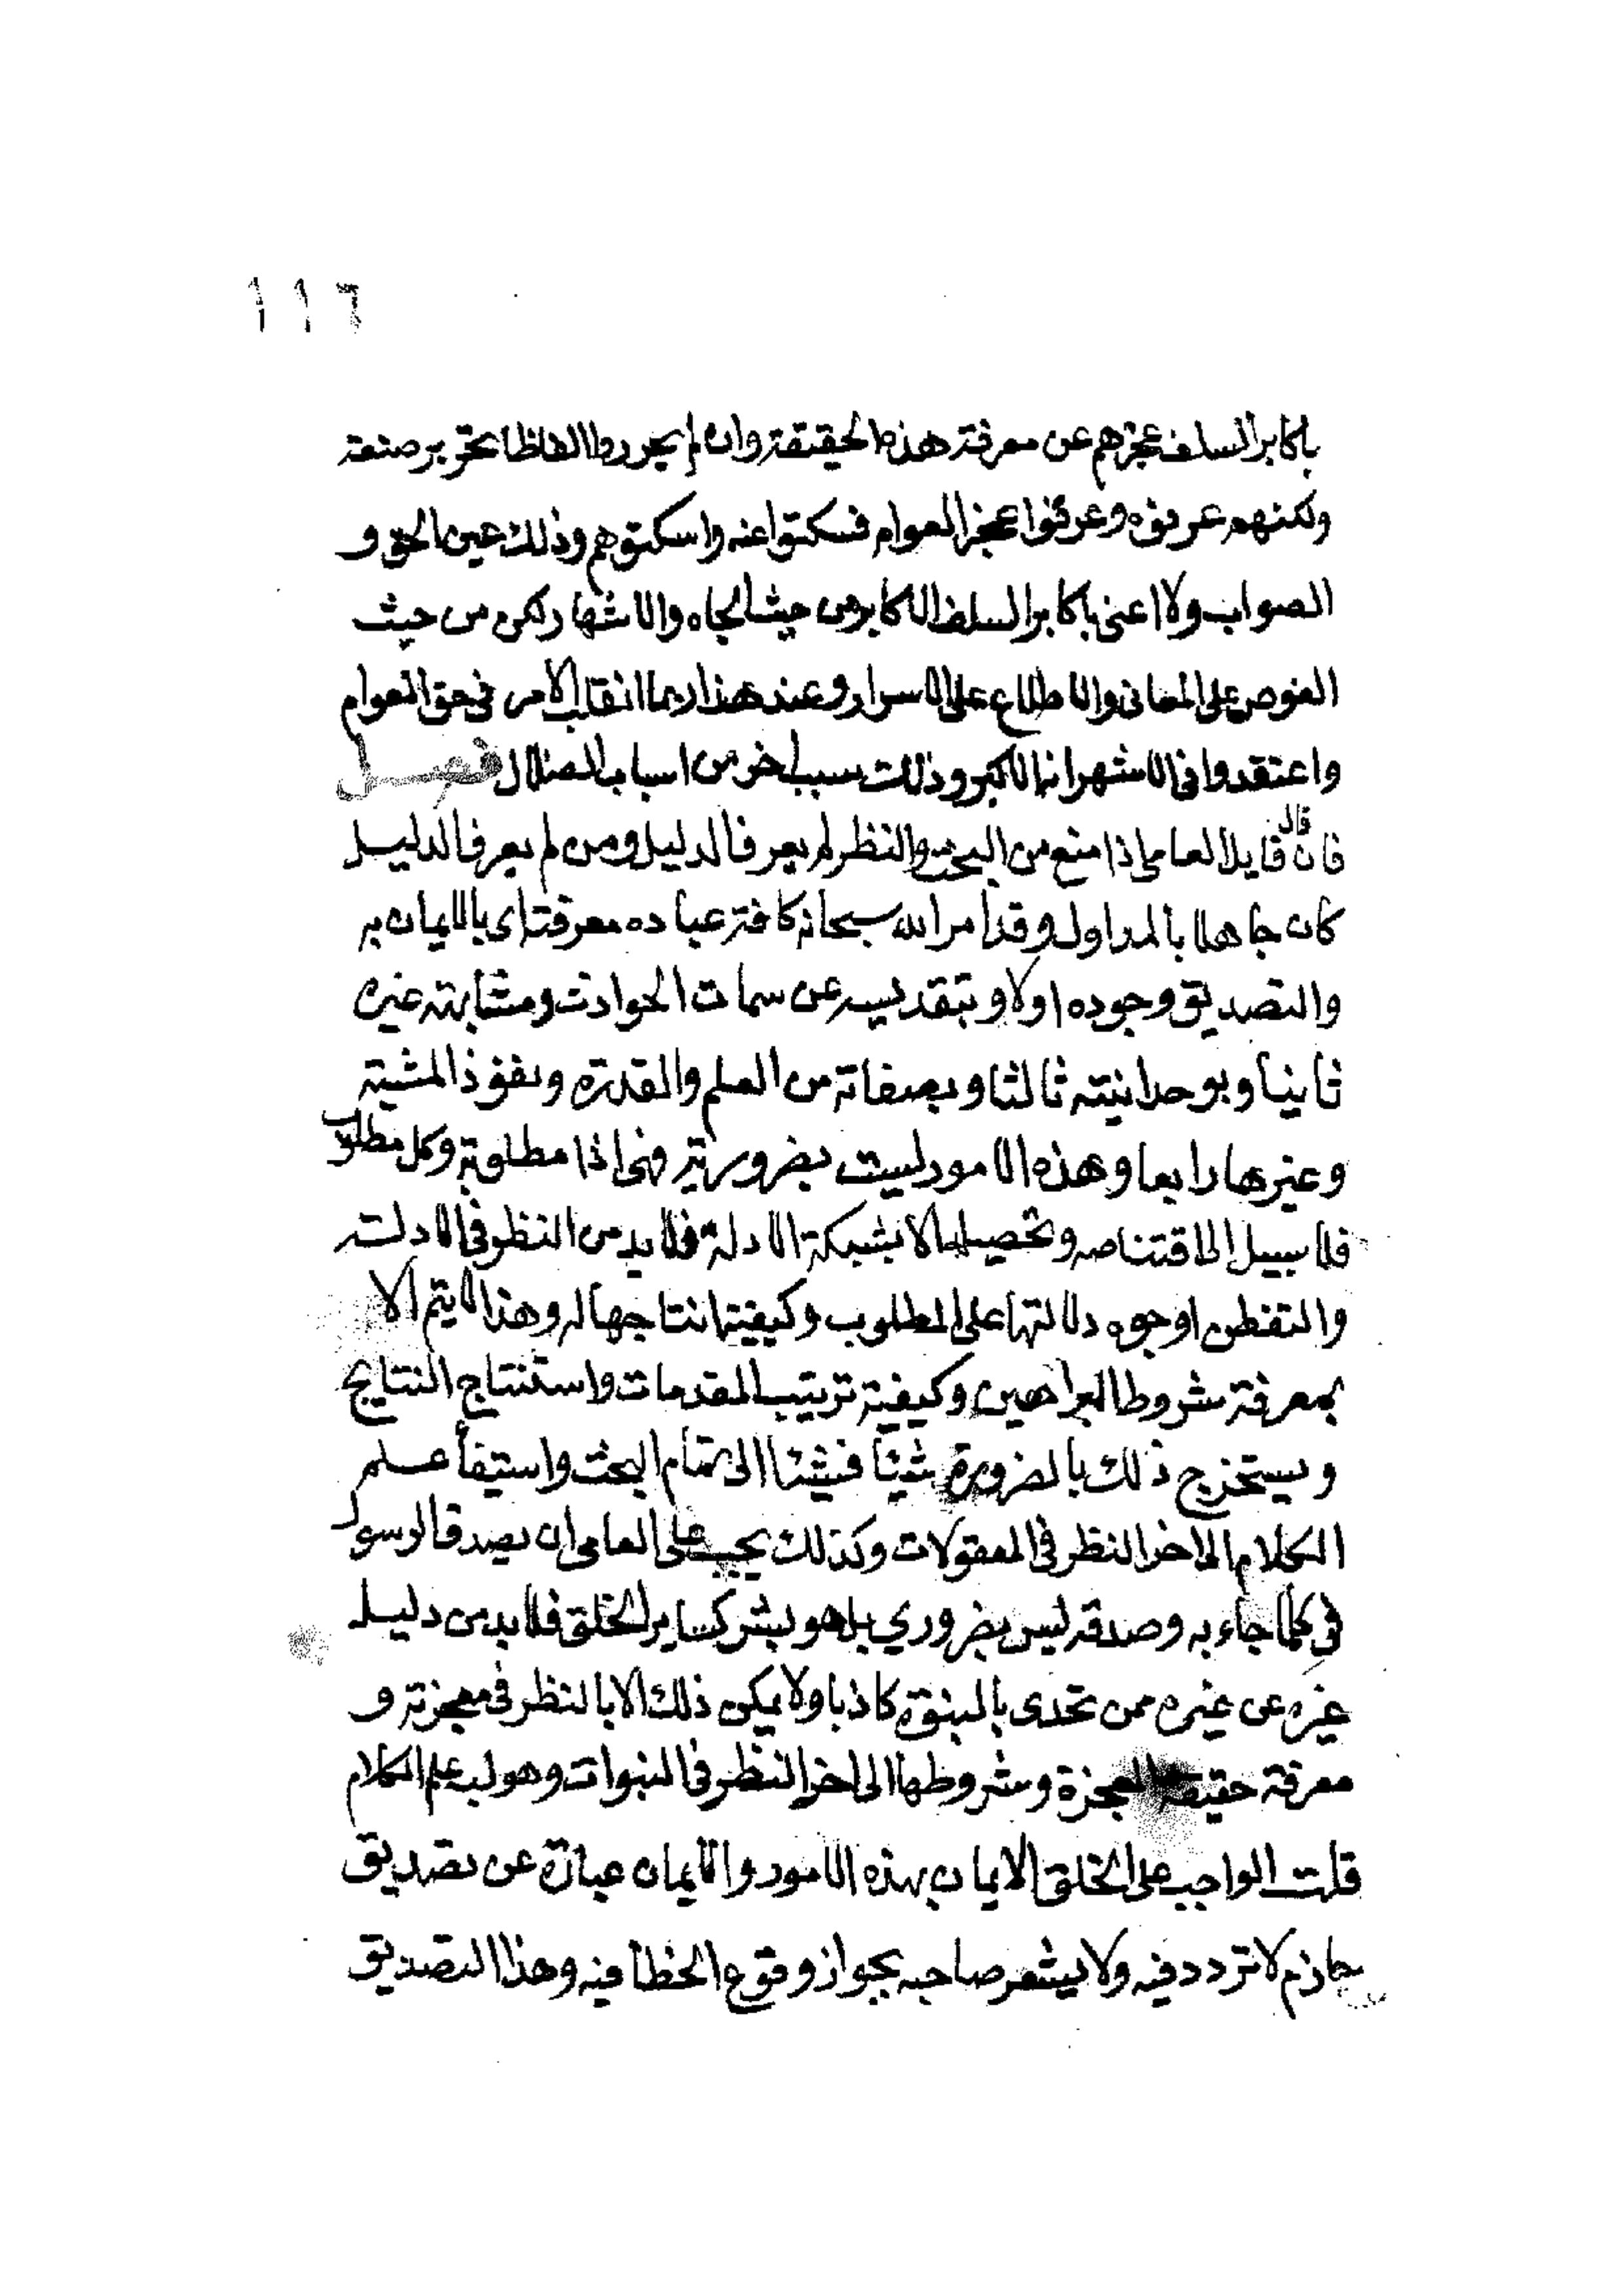 ١١٦
باكابر السلف عجزهم عن معرفة هذه الحقيقة وان لم يحرروا الفاظا تحرير صنعة
ولكنهم عرفوه وعرفوا عجز العوام فسكتوا عنه واسكتوهم وذلك عين الحق و
الصواب ولا اعنى باكابر السلف الاكابر من حيث الجاه والاشتهار ولكن من حيث
الغوص على المعانى والاطلاع على الاسرار وعند هذا ربما انقلب الامر فى حق العوام
واعتقدوا فى الاشهر انه الاكبر وذلك سبب اخر من اسباب الضلال فصل
فان قال قايل العامى اذا منع من البحث والنظر لم يعرف الدليل ومن لم يعرف الدليل
كان جاهلا بالمدلول وقد امر الله سبحانه كافة عباده معرفته اى بالايمان به
والتصديق وجوده اولا وبتقديسه عن سمات الحوادث ومشابهته غيره
ثانيا وبوحدانيته ثالثا وبصفاته من العلم والقدرة ونفوذ المشية
وغيرها رابعا وهذه الامور ليست بضرورية فهى اذا مطلوبة وكل مطلوب
فلا سبيل الى اقتناصه وتحصيله الا بشبكة الادلة فلا بد من النظر فى الادلة
والتفطن اوجوه دلالتها على المطلوب وكيفية انتاجها له وهذا لا يتم الا
بمعرفة شروط البراهين وكيفية ترتيب المقدمات واستنتاج النتايج
ويستخرج ذلك بالضرورة شيئا فشيئا الى تمام البحث واستيفا علم
الكلام الى اخر النظر فى المعقولات وكذلك يجب على العامى ان يصدق الرسول
فى كلما جاء به وصدقه ليس بضروري بل هو بشر كساير الخلق فلا بد من دليل
غيره عن غيره ممن تحدى بالنبوة كاذبا ولا يمكن ذلك الا بالنظر فى معجزته و
معرفة حقيقة المعجزة وشروطها الى اخر النظر فى النبوات وهو لب علم الكلام
قلت الواجب على الخلق الايمان بهذه الامور والايمان عبارة عن تصديق
جازم لا تردد فيه ولا يشعر صاحبه بجواز وقوع الخطأ فيه وهذا التصديق